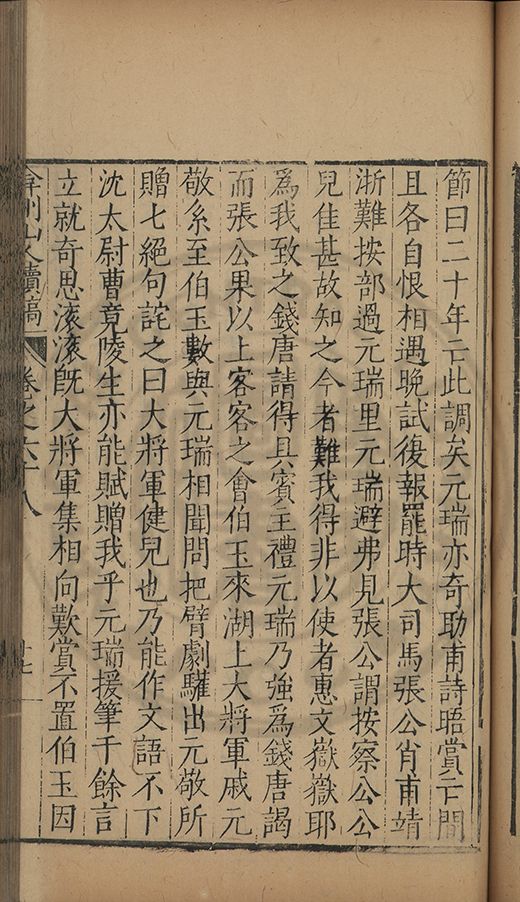 節曰二十年亡此調矣元瑞亦奇助甫詩晤賞亡間
且各自恨相遇晚試復報罷時大司馬張公肖甫靖
浙難按部過元瑞里元瑞避弗見張公謂按察公公
兒佳甚故知之今者難我得非以使者惠文嶽嶽耶
爲我致之錢唐請得具賓主禮元瑞乃強爲錢唐謁
而張公果以上客客之會伯玉來湖上大將軍戚元
敬系至伯玉數與元瑞相聞問把臂劇驩出元敬所
贈七絕句詫之曰大將軍健兒也乃能作文語不下
沈太尉曹竟陵生亦能賦贈我乎元瑞援筆千餘言
立就奇思滾滾旣大將軍集相向歎賞不置伯玉因
弇州山人續稿 卷之六十八 十七